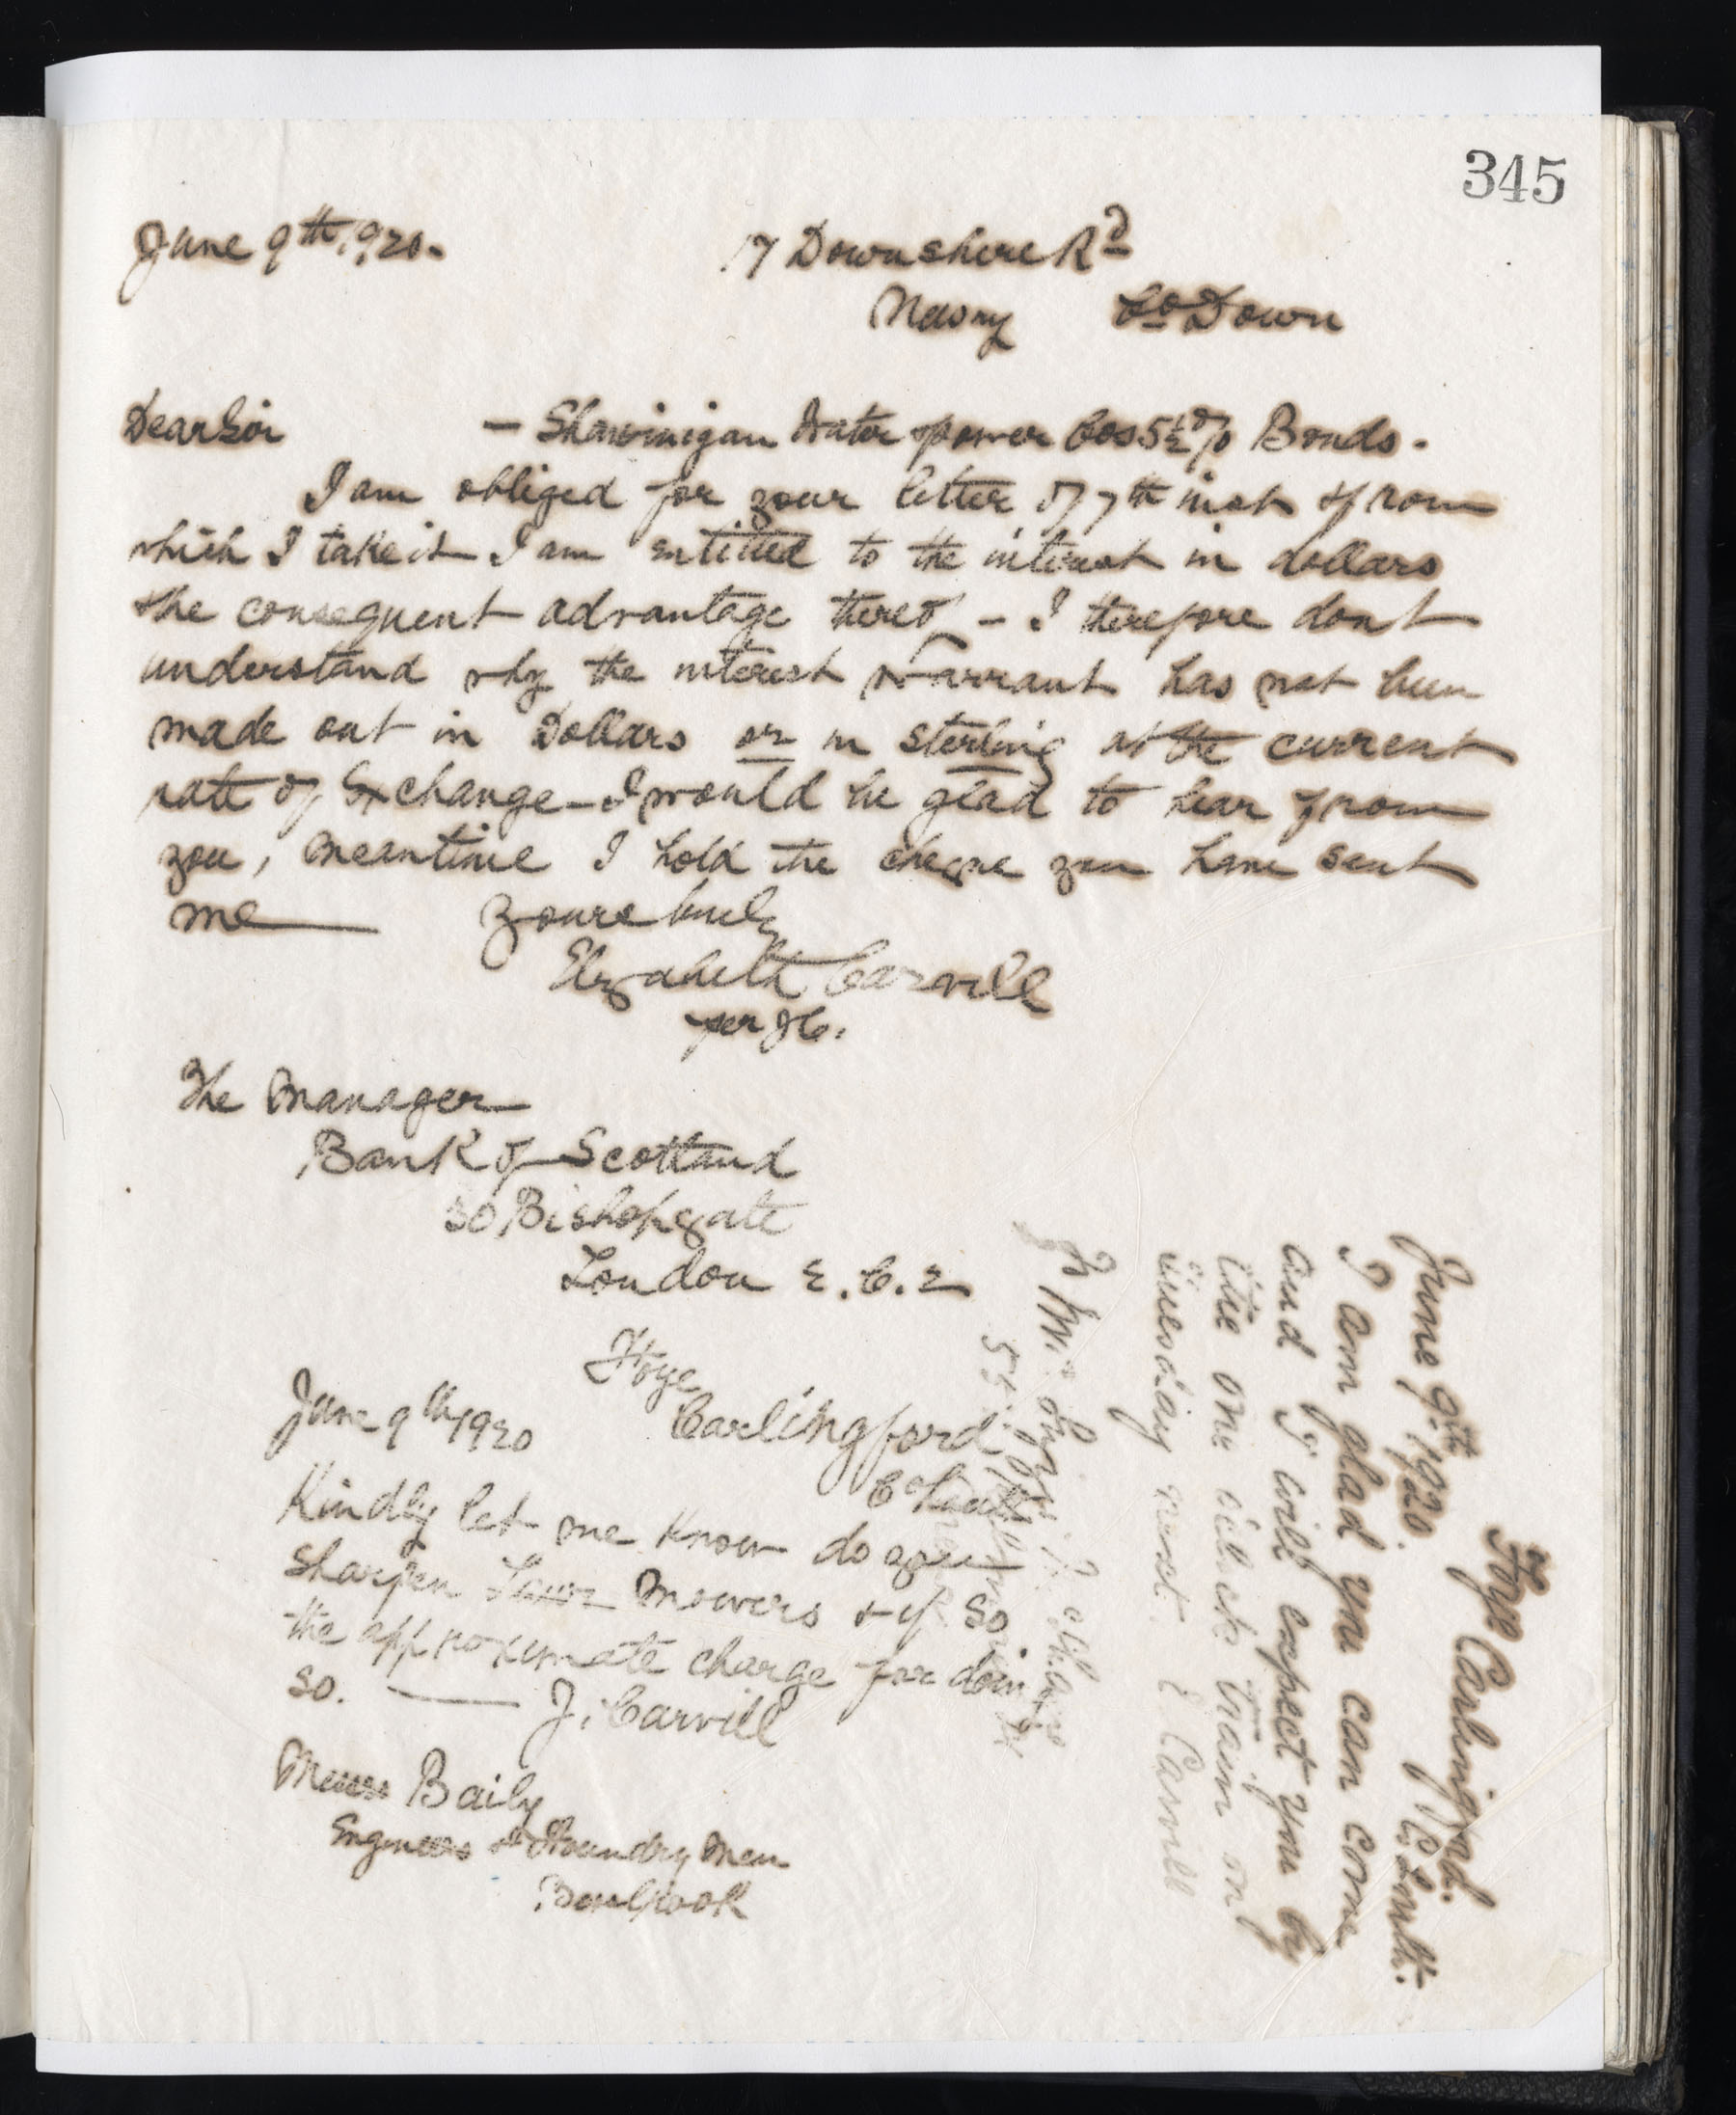 345
June 9th 1920.
17 Downshire Rd
Newry Co Down
Dear Sir — Shawinigan Water & power Cos 5½% Bonds.
I am obliged for your letter of 7th inst & from
which I take it I am entitled to the interest in dollars
& the consequent advantage thereof — I therefore dont
understand why the interest warrant has not been
made out in Dollars or in sterling at the current
rate of Exchange — I would be glad to hear from
you, meantime I hold the cheque you have sent
me — Yours truly
Elizabeth Carvill
per JC.
The Manager
Bank of Scotland
30 Bishopsgate
London E.C.2
Foye
June 9th 1920 Carlingford
Co Louth
Kindly let me know do you
sharpen Lawn Mowers & if so
the approximate charge for doing
so. — J. Carvill
Messrs Baily
Engineers & Foundry Men
Bessbrook
Foye Carlingford.
June 9th 1920. Co Louth.
I am glad you can come
and I will expect you by
the one o'clock train on
Tuesday next. E Carvill